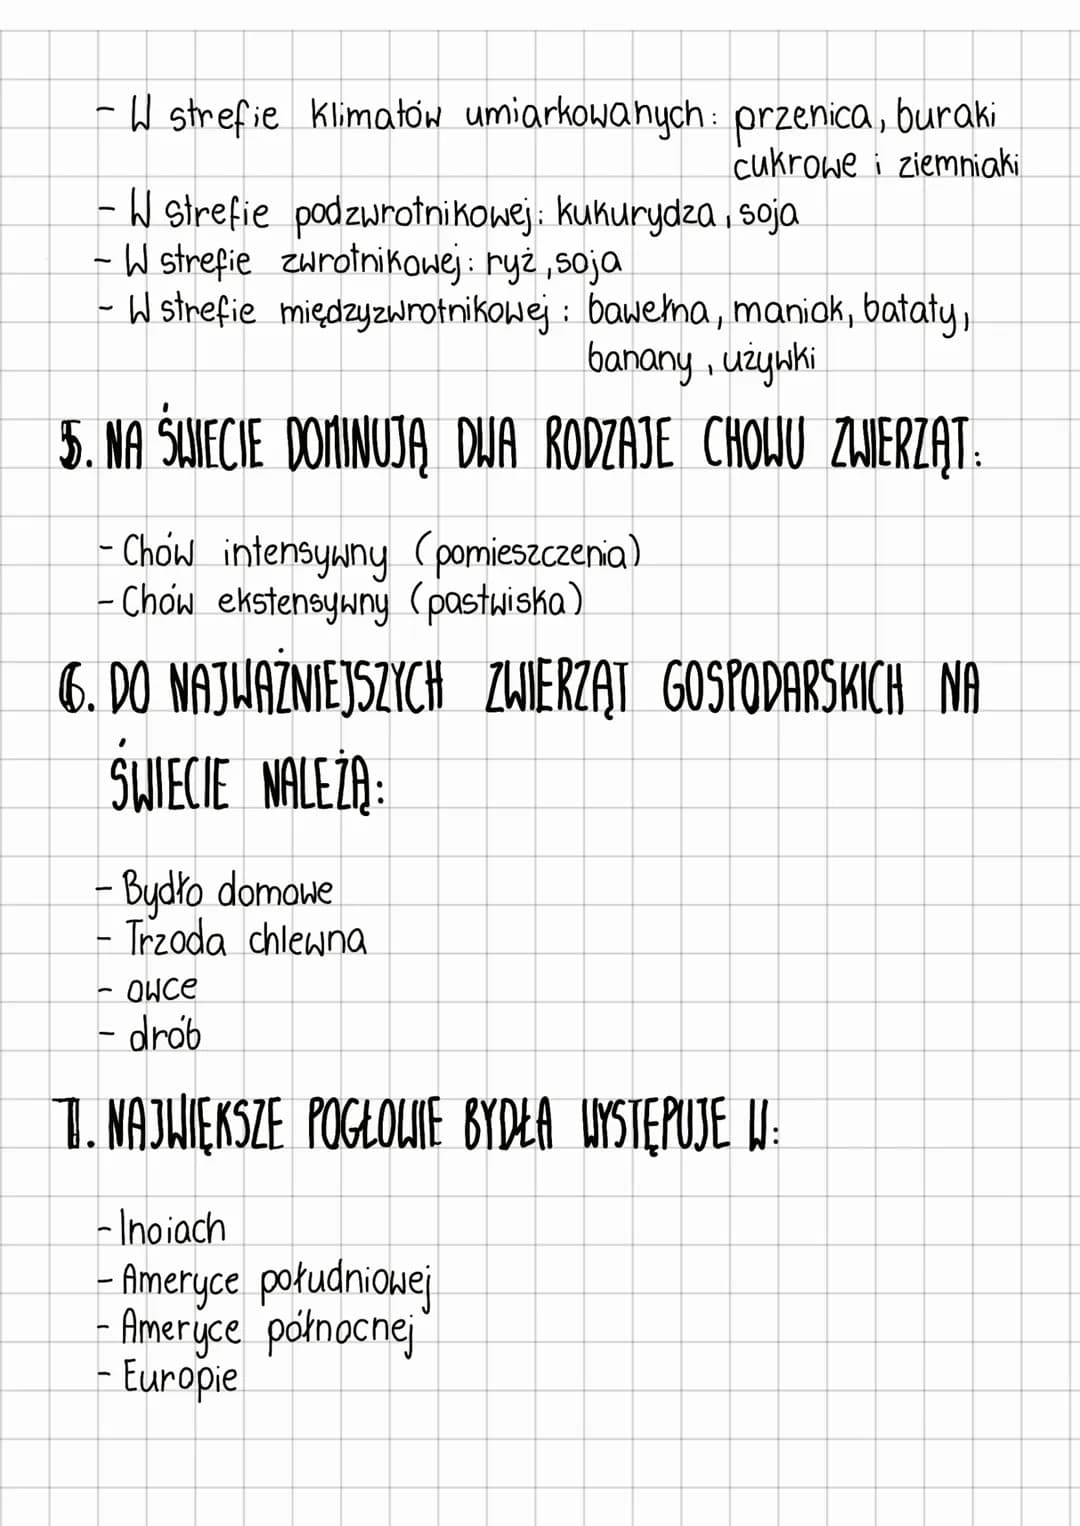 - W strefie klimatów umiarkowanych: przenica, buraki
cukrowe i ziemniaki
- W strefie podzwrotnikowej: kukurydza, soja
- W strefie zwrotnikowej: ryż, soja
- W strefie międzyzwrotnikowej: bawełna, maniok, bataty,
banany, używki
5. NA ŚWIECIE DOMINUJĄ DWA RODZAJE CHOWU ZWIERZĄT:
- Chów intensywny (pomieszczenia)
- Chów ekstensywny (pastwiska)
6. DO NAJWAŻNIEJSZYCH ZWIERZĄT GOSPODARSKICH NA
ŚWIECIE NALEŻĄ:
- Bydło domowe
- Trzoda chlewna
- owce
- drób
7. NAJWIĘKSZE POGŁOWIE BYDŁA WYSTĘPUJE W:
- Inoiach
- Ameryce południowej
- Ameryce północnej
- Europie